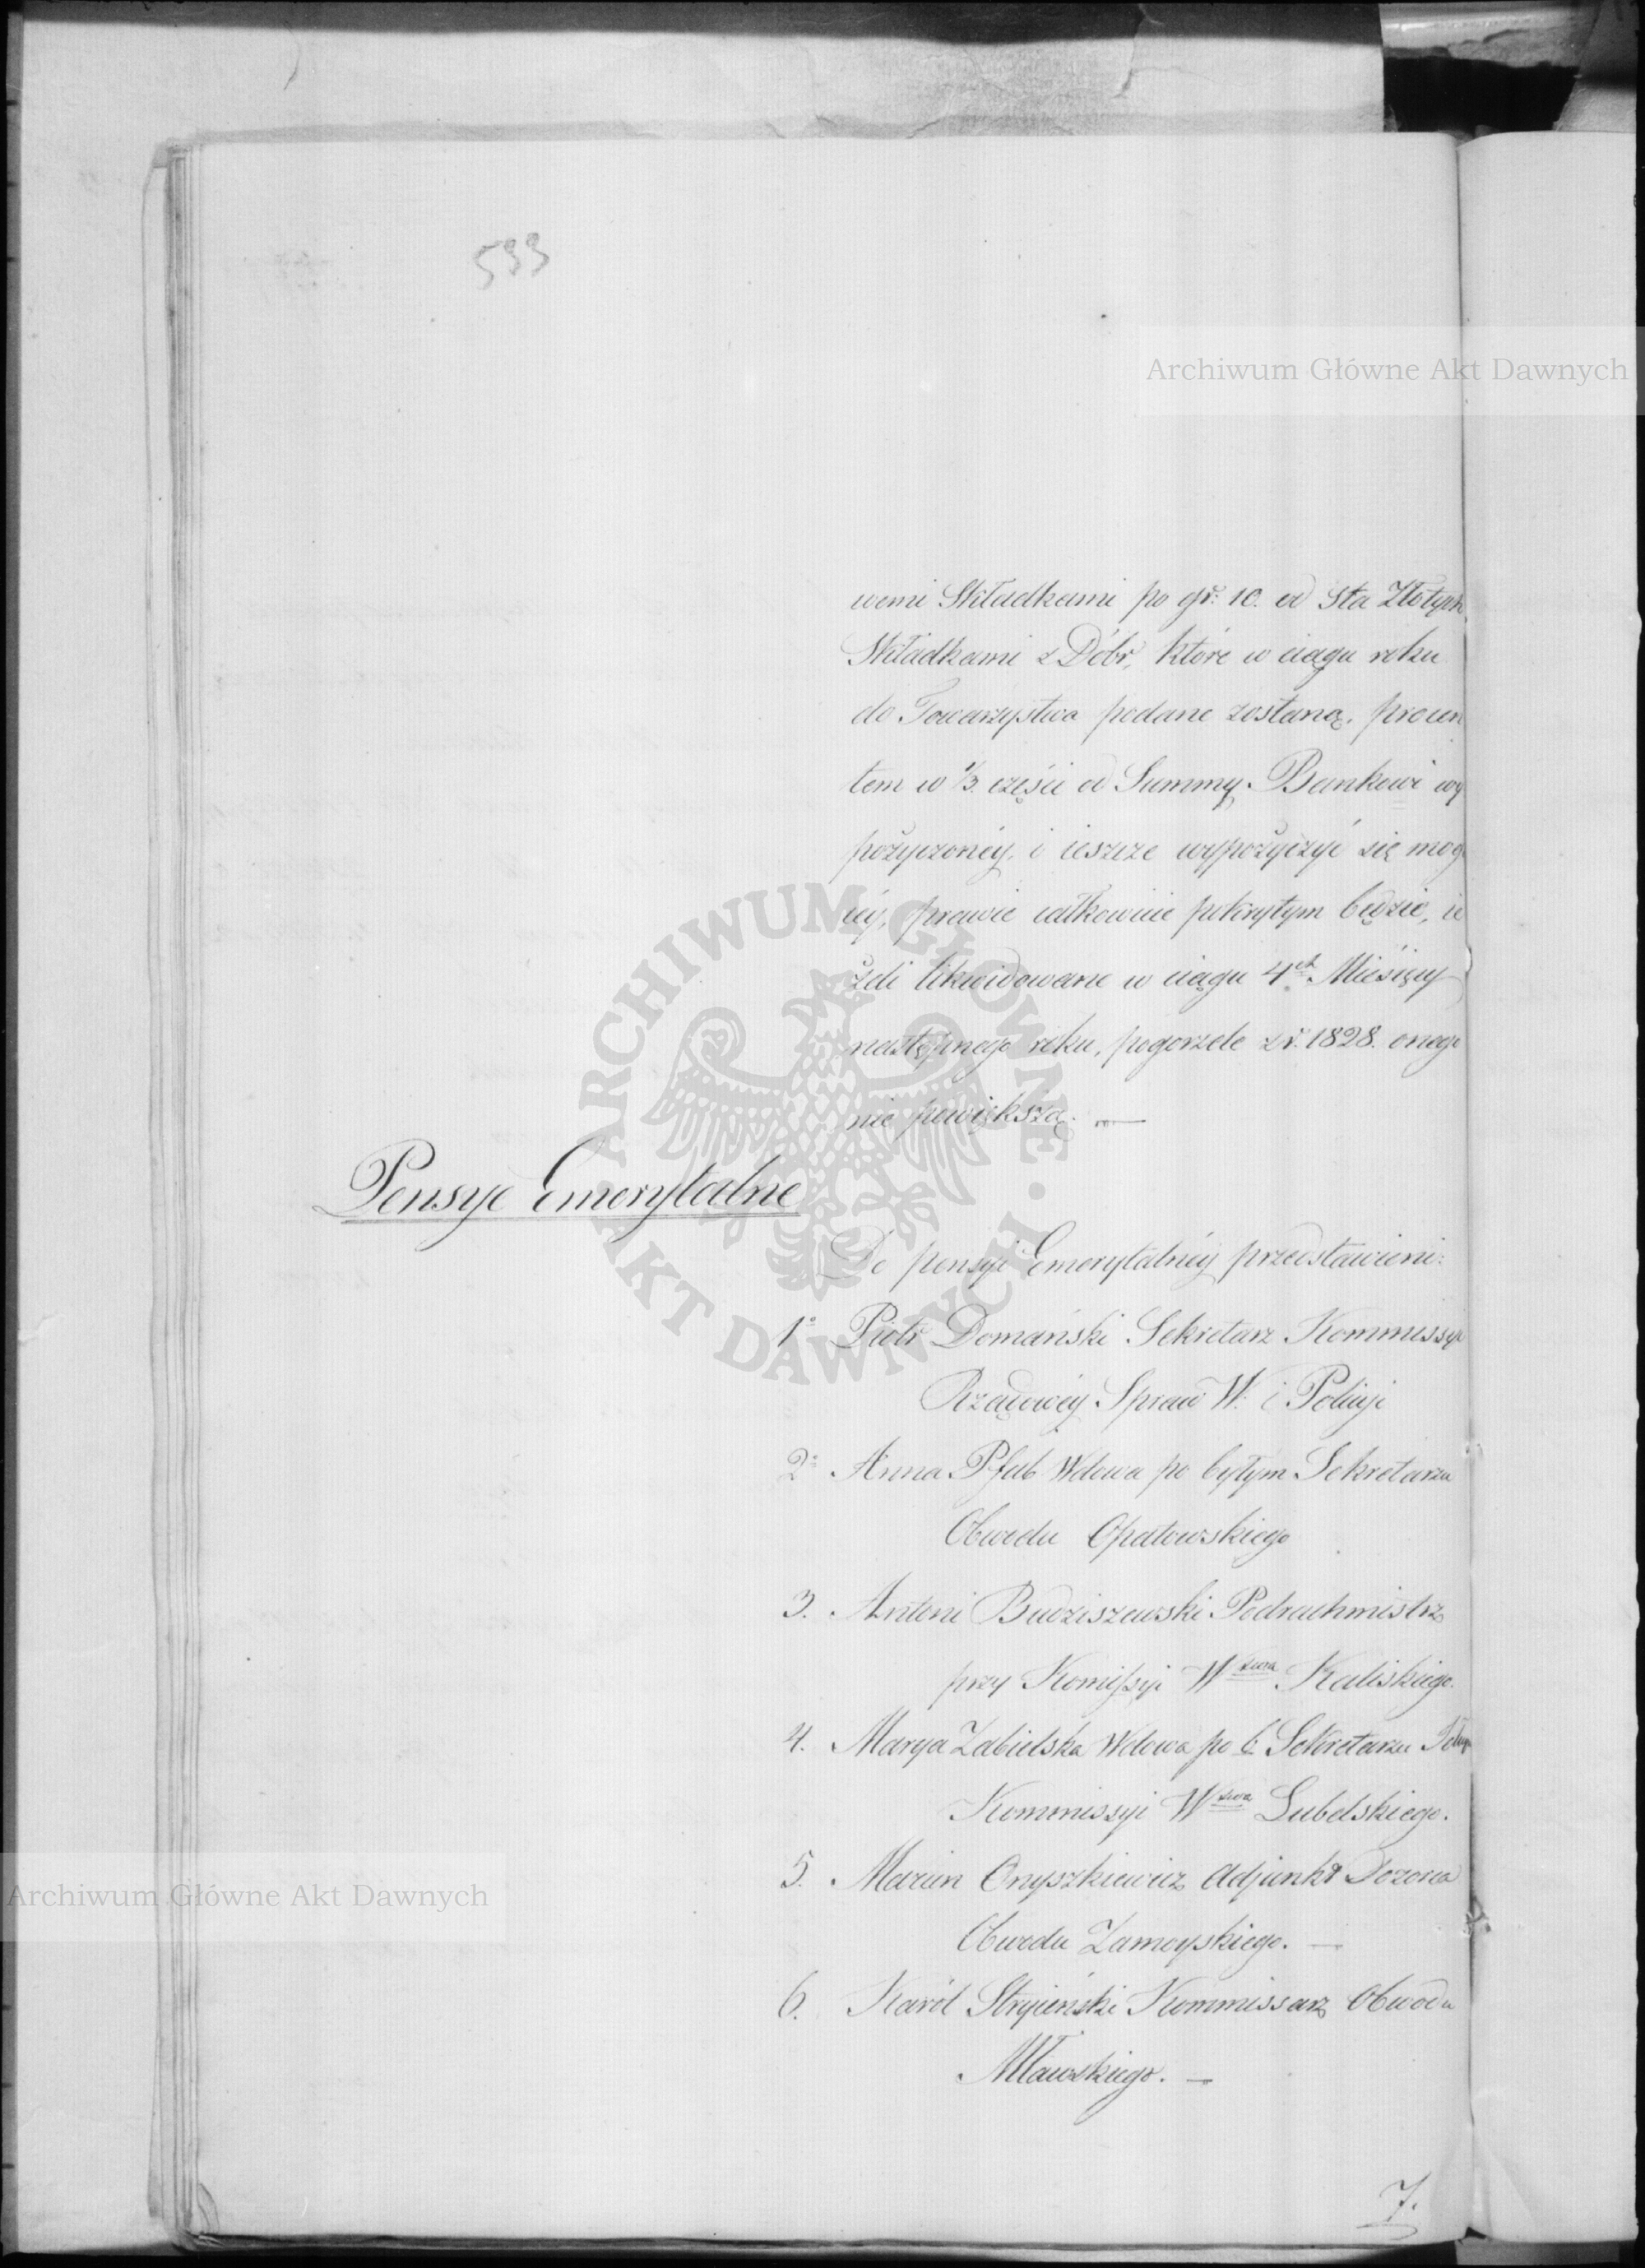 533
Archiwum Główne Akt Dawnych
wemi Składkami po gr: 10. od Sta Złotych
Składkami z Dóbr, które w ciągu roku
do Towarzystwa podane zostaną, procen
tem w 1/3. części od Summy Bankowi wy
pożyczonéy, i ieszcze wypożyczyć się mog
céy, prawie całkowicie pokrytym będzie, ie
żeli likwidowane w ciągu 4ch Miesięcy
następnego roku, pogorzele z r. 1828. onego
nie powiększą. —
ARCHIWUM GŁÓWNE
AKT DAWNYCH
Pensye Emerytalne
Do pensyi Emerytalnéy przedstawieni:
1o Piotr Domański Sekretarz Kommissyi
Rządowéy Spraw W. i Policyi
2o Anna Pfab Wdowa po byłym Sekretarzu
Obwodu Opatowskiego
3. Antoni Budziszewski Podrachmistrz
przy Komissyi Wztwa Kaliskiego.
4. Marya Zabielska Wdowa po b. Sekretarzu
Kommissyi Wztwa Lubelskiego.
5. Marcin Onyszkiewicz Adjunkt Dozorca
Obwodu Zamoyskiego. —
6. Karól Stryieński Kommissarz Obwodu
Mławskiego. —
Archiwum Główne Akt Dawnych
7.